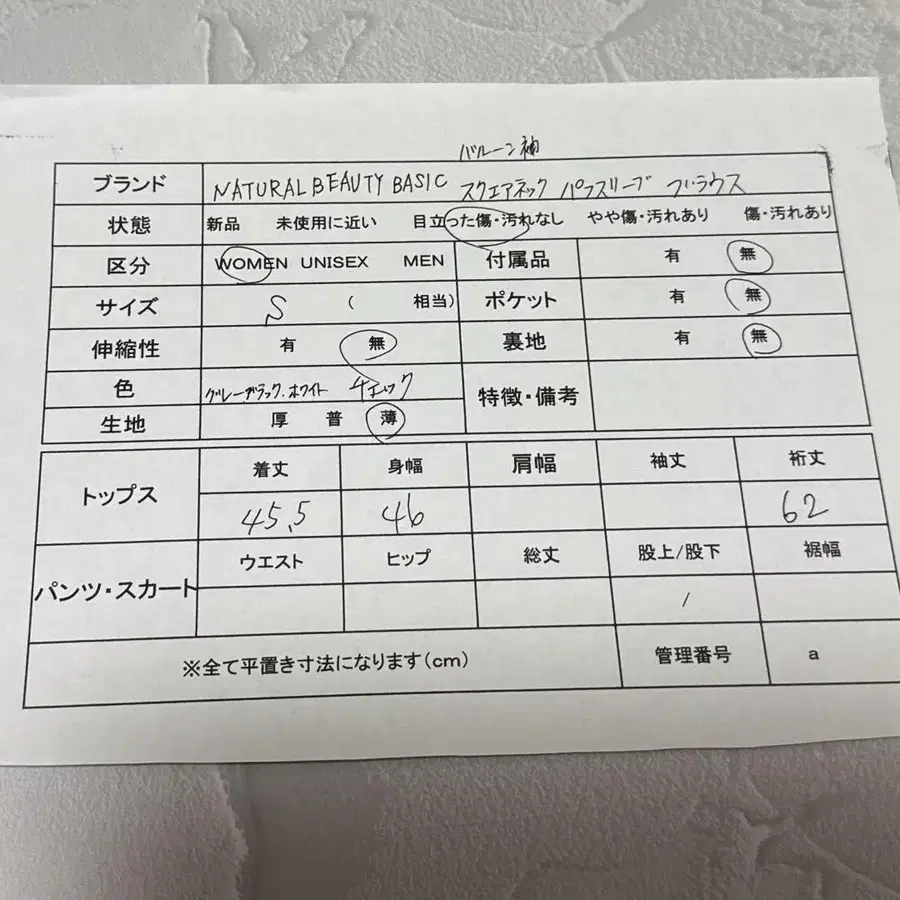 バルーン袖
ブランド NATURAL BEAUTY BASIC スクエアネック パフスリーブ ブラウス
状態 新品 未使用に近い 目立った傷・汚れなし やや傷・汚れあり 傷・汚れあり
区分 WOMEN UNISEX MEN 付属品 有 無
サイズ S ( 相当) ポケット 有 無
伸縮性 有 無 裏地 有 無
色 グレー.ブラック.ホワイト チェック 特徴・備考
生地 厚 普 薄
トップス 着丈 身幅 肩幅 袖丈 裄丈
45.5 46 62
パンツ・スカート ウエスト ヒップ 総丈 股上/股下 裾幅
/
※全て平置き寸法になります(cm) 管理番号 a